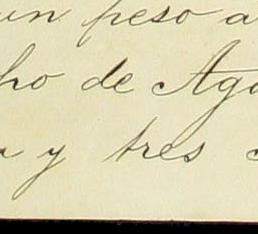 un peso a
ho de Ago
a y tres